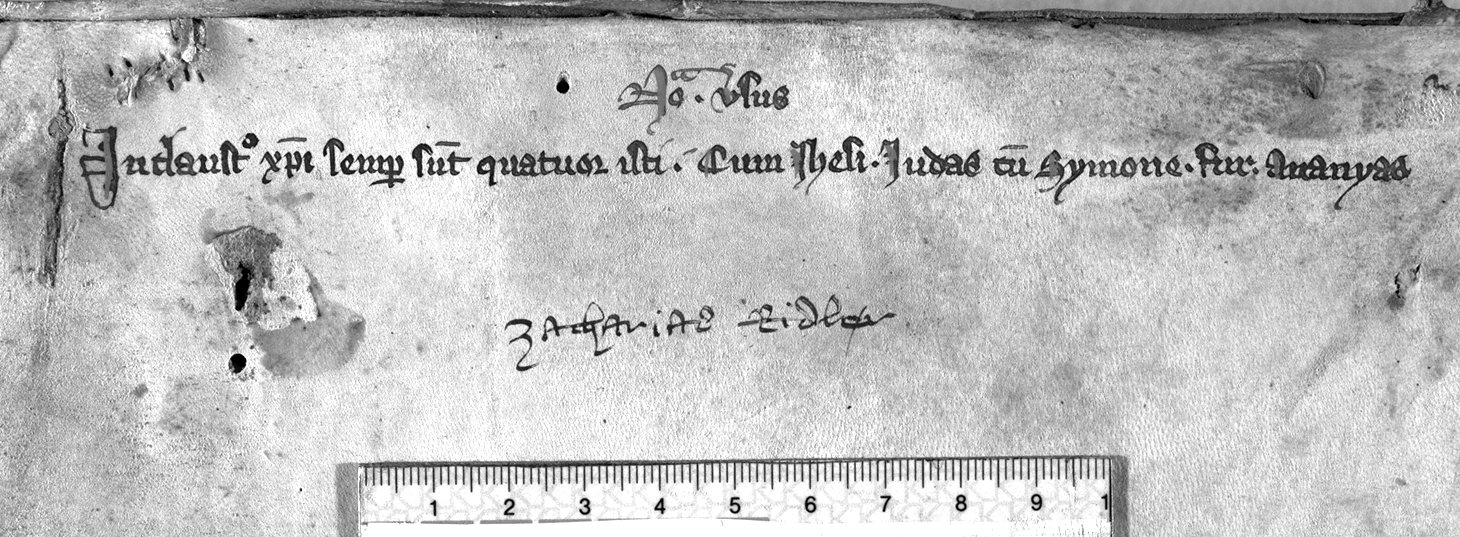 No̅ . vsus
In claustº xp̅i semꝑ su̅t quatuor isti . Cum Ihesi . Iudas cu̅ Symone . fur . Ananyas
Zacharias Ridler
1 2 3 4 5 6 7 8 9 1